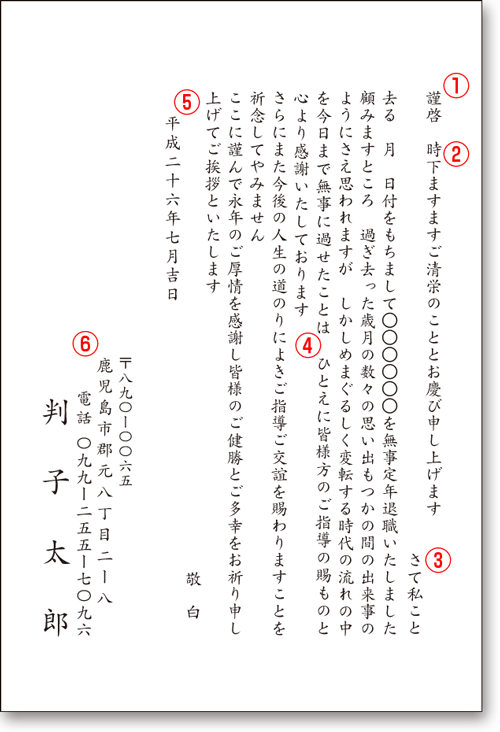 ①
謹啓 ② 時下ますますご清栄のこととお慶び申し上げます
③ さて私こと
去る 月 日付をもちまして〇〇〇〇〇〇を無事定年退職いたしました
顧みますところ 過ぎ去った歳月の数々の思い出もつかの間の出来事の
ようにさえ思われますが しかしめまぐるしく変転する時代の流れの中
を今日まで無事に過せたことは ④ ひとえに皆様方のご指導の賜ものと
心より感謝いたしております
さらにまた今後の人生の道のりによきご指導ご交誼を賜わりますことを
祈念してやみません
ここに謹んで永年のご厚情を感謝し皆様のご健勝とご多幸をお祈り申し
上げてご挨拶といたします
敬白
⑤ 平成二十六年七月吉日
⑥
〒八九〇ー〇〇六五
鹿児島市郡元八丁目二ー八
電話 〇九九ー二五五ー七〇九六
判子太郎